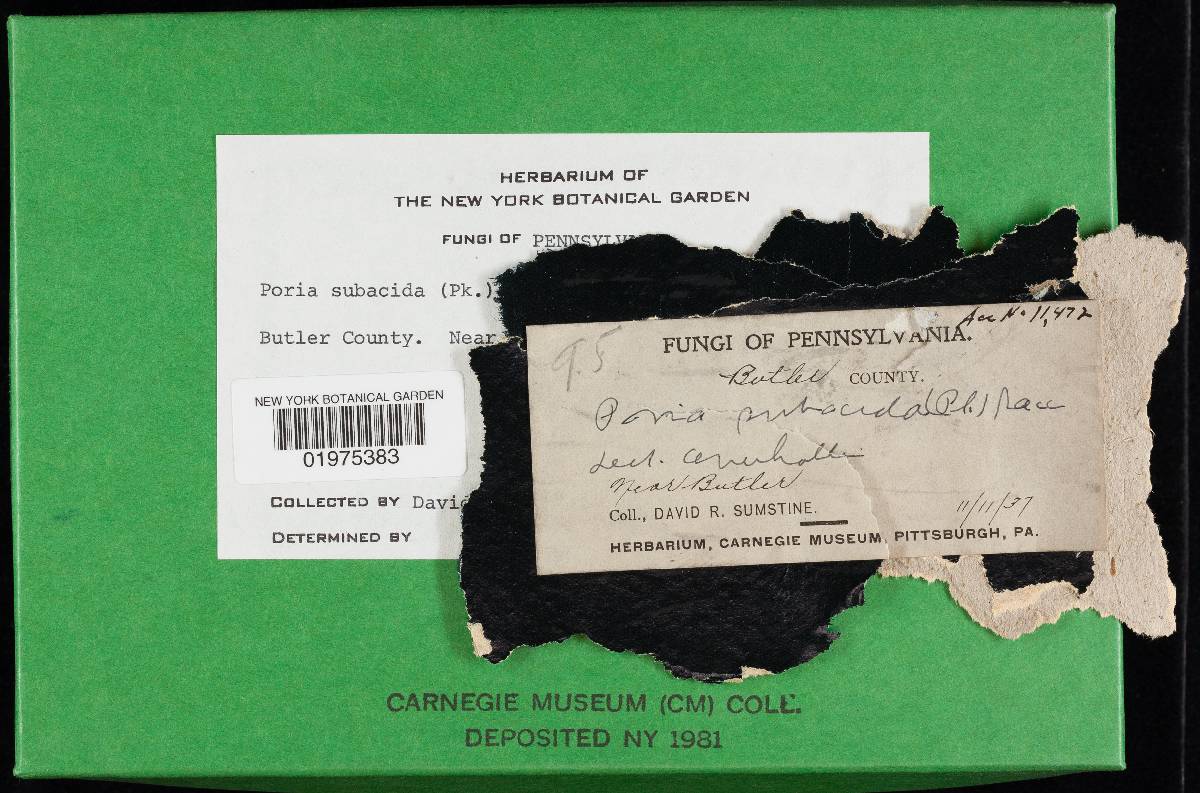 HERBARIUM OF
THE NEW YORK BOTANICAL GARDEN
FUNGI OF PENNSYLV
Poria subacida (Pk.)
Butler County. Near
NEW YORK BOTANICAL GARDEN
01975383
COLLECTED BY David
DETERMINED BY
Acc No 11,472
9.5
FUNGI OF PENNSYLVANIA.
Butler COUNTY.
Poria subacida (Pk.) Sacc
Det. Overholts
Near Butler
Coll., DAVID R. SUMSTINE.
11/11/37
HERBARIUM, CARNEGIE MUSEUM, PITTSBURGH, PA.
CARNEGIE MUSEUM (CM) COLL.
DEPOSITED NY 1981